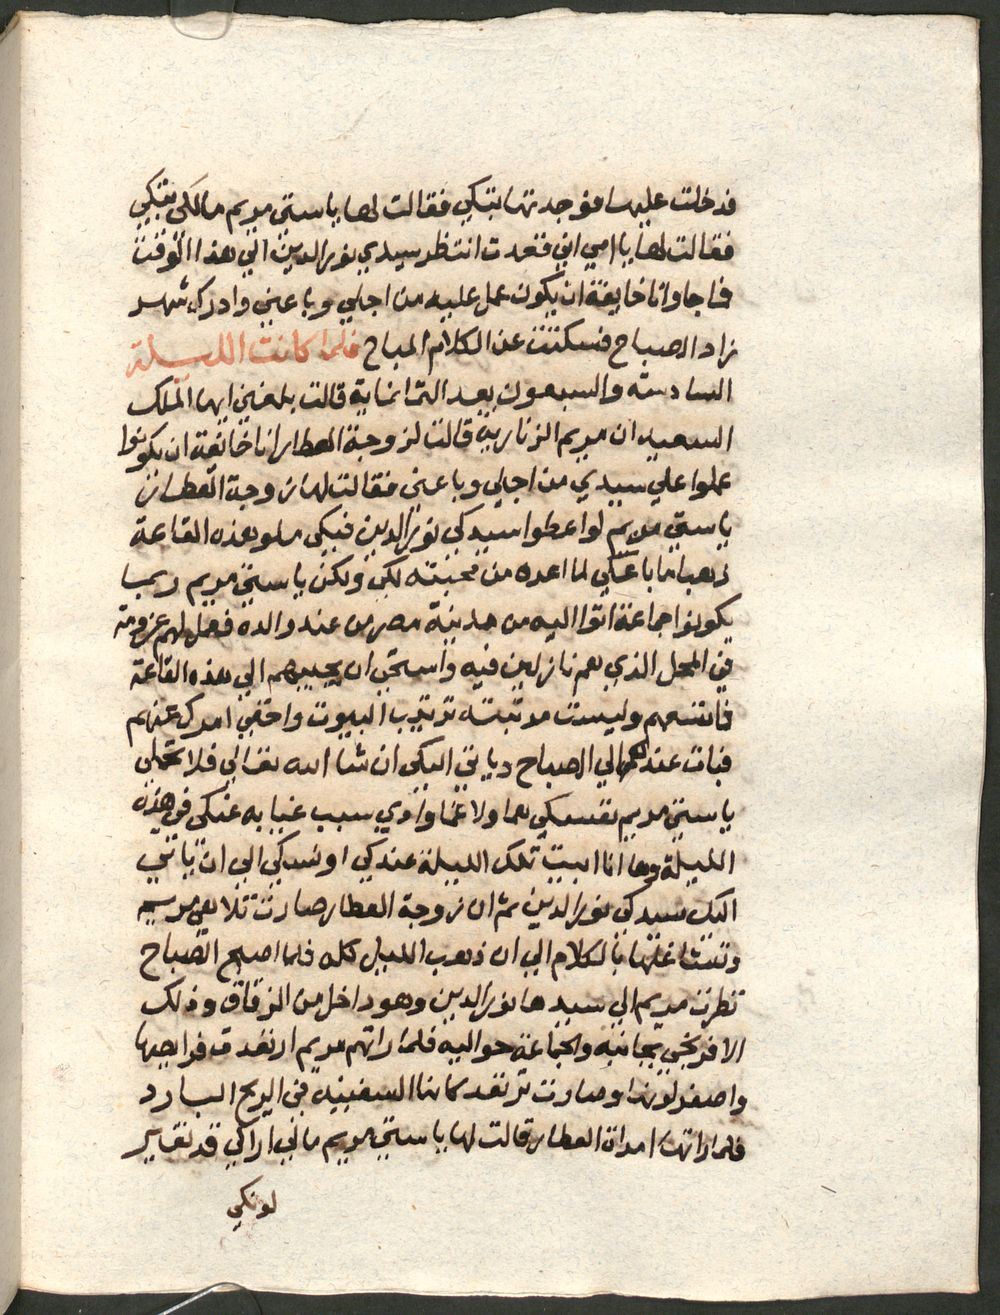 فدخلت عليها فوجدتها تبكي فقالت لها يا ستي مريم مالكي تبكي
فقالت لها يا امي اني قعدت انتظر سيدي نور الدين الي هذا الوقت
فما جا وانا خايفة ان يكون عمل عليه من اجلي وباعني وادرك شهر
زاد الصباح فسكتت عن الكلام المباح فلما كانت الليلة
السادسة والسبعون بعد الثمانماية قالت بلغني ايها الملك
السعيد ان مريم الزنارية قالت لزوجة العطار انا خائفة ان يكونوا
عملوا علي سيدي من اجلي وباعني فقالت لها زوجة العطار
يا ستي مريم لو اعطوا سيدكي نور الدين فيكي ملو هذه القاعة
ذهبا ما باعكي لما اعده من محبته لكي ولكن يا ستي مريم ربما
يكونوا جماعة اتوا اليه من مدينة مصر من عند والده فعمل لهم عزومة
في المحل الذي هم نازلين فيه واستحي ان يجيبهم الي هذه القاعة
فاتسعهم وليست مرتبته ترتيب البيوت واخفي امرك عنهم
فبات عندهم الي الصباح وياتي اليكي ان شا الله تعالي فلا تحملي
يا ستي مريم نفسكي هما ولا غما وادي سبب غيابه عنكي في هذه
الليلة وها انا ابيت تلك الليلة عندكي اونسكي الي ان ياتي
اليك سيدكي نور الدين ثم ان زوجة العطار صارت تلاهي مريم
وتشاغلها بالكلام الي ان ذهب الليل كله فلما اصبح الصباح
نظرت مريم الي سيدها نور الدين وهو داخل من الزقاق وذلك
الافرنجي بجانبه والجماعة حواليه فلما راتهم مريم ارتعدت فرايصها
واصفر لونها وصارت ترتعد كانها السفينه في الريح البارد
فلما راتها امراة العطار قالت لها يا ستي مريم مالي اراكي قد تغير
لونكي